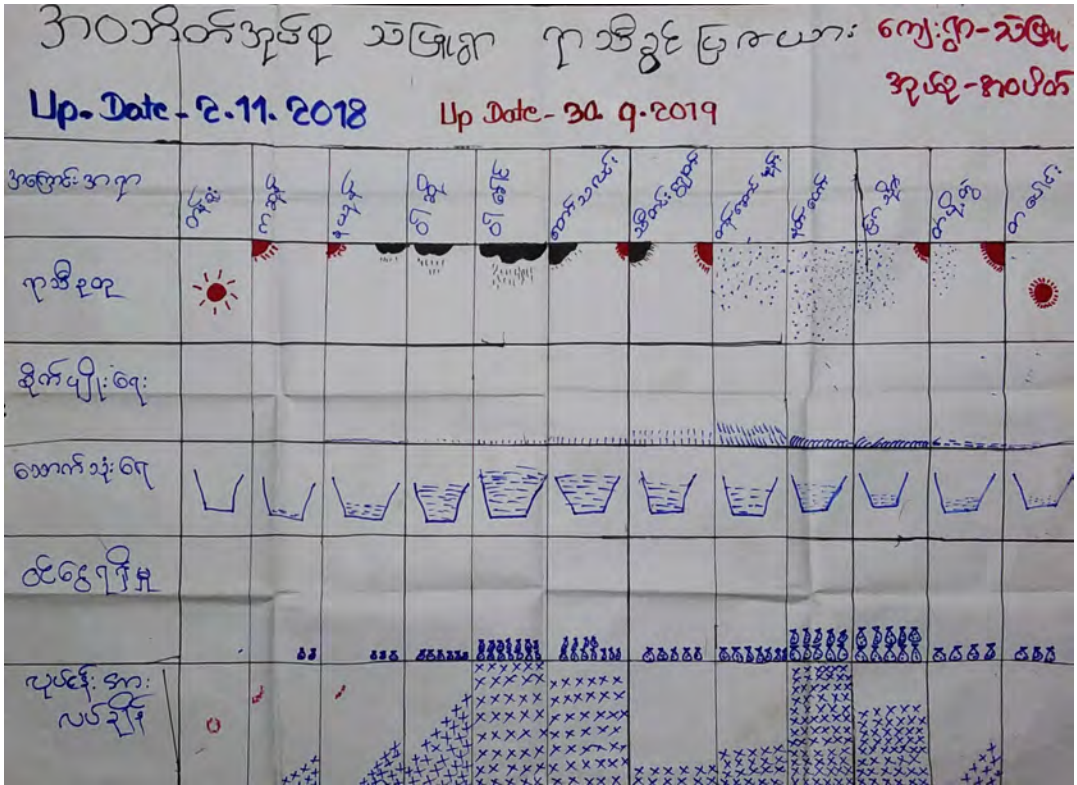 အဝဘိတ်အုပ်စု သဲဖြူရွာ ရာသီခွင်ပြဇယား
ကျေးရွာ-သဲဖြူ
အုပ်စု-အဝဘိတ်
Up-Date - 2.11.2018 Up Date - 30.9.2019
အကြောင်းအရာ တန်ခူး ကဆုန် နယုန် ဝါဆို ဝါခေါင် တော်သလင်း သီတင်းကျွတ် တန်ဆောင်မုန်း နတ်တော် ပြာသို တပို့တွဲ တပေါင်း
ရာသီဥတု
စိုက်ပျိုးရေး
သောက်သုံးရေ
ဝင်ငွေရရှိမှု
လုပ်ငန်းအား
လပ်ချိန်